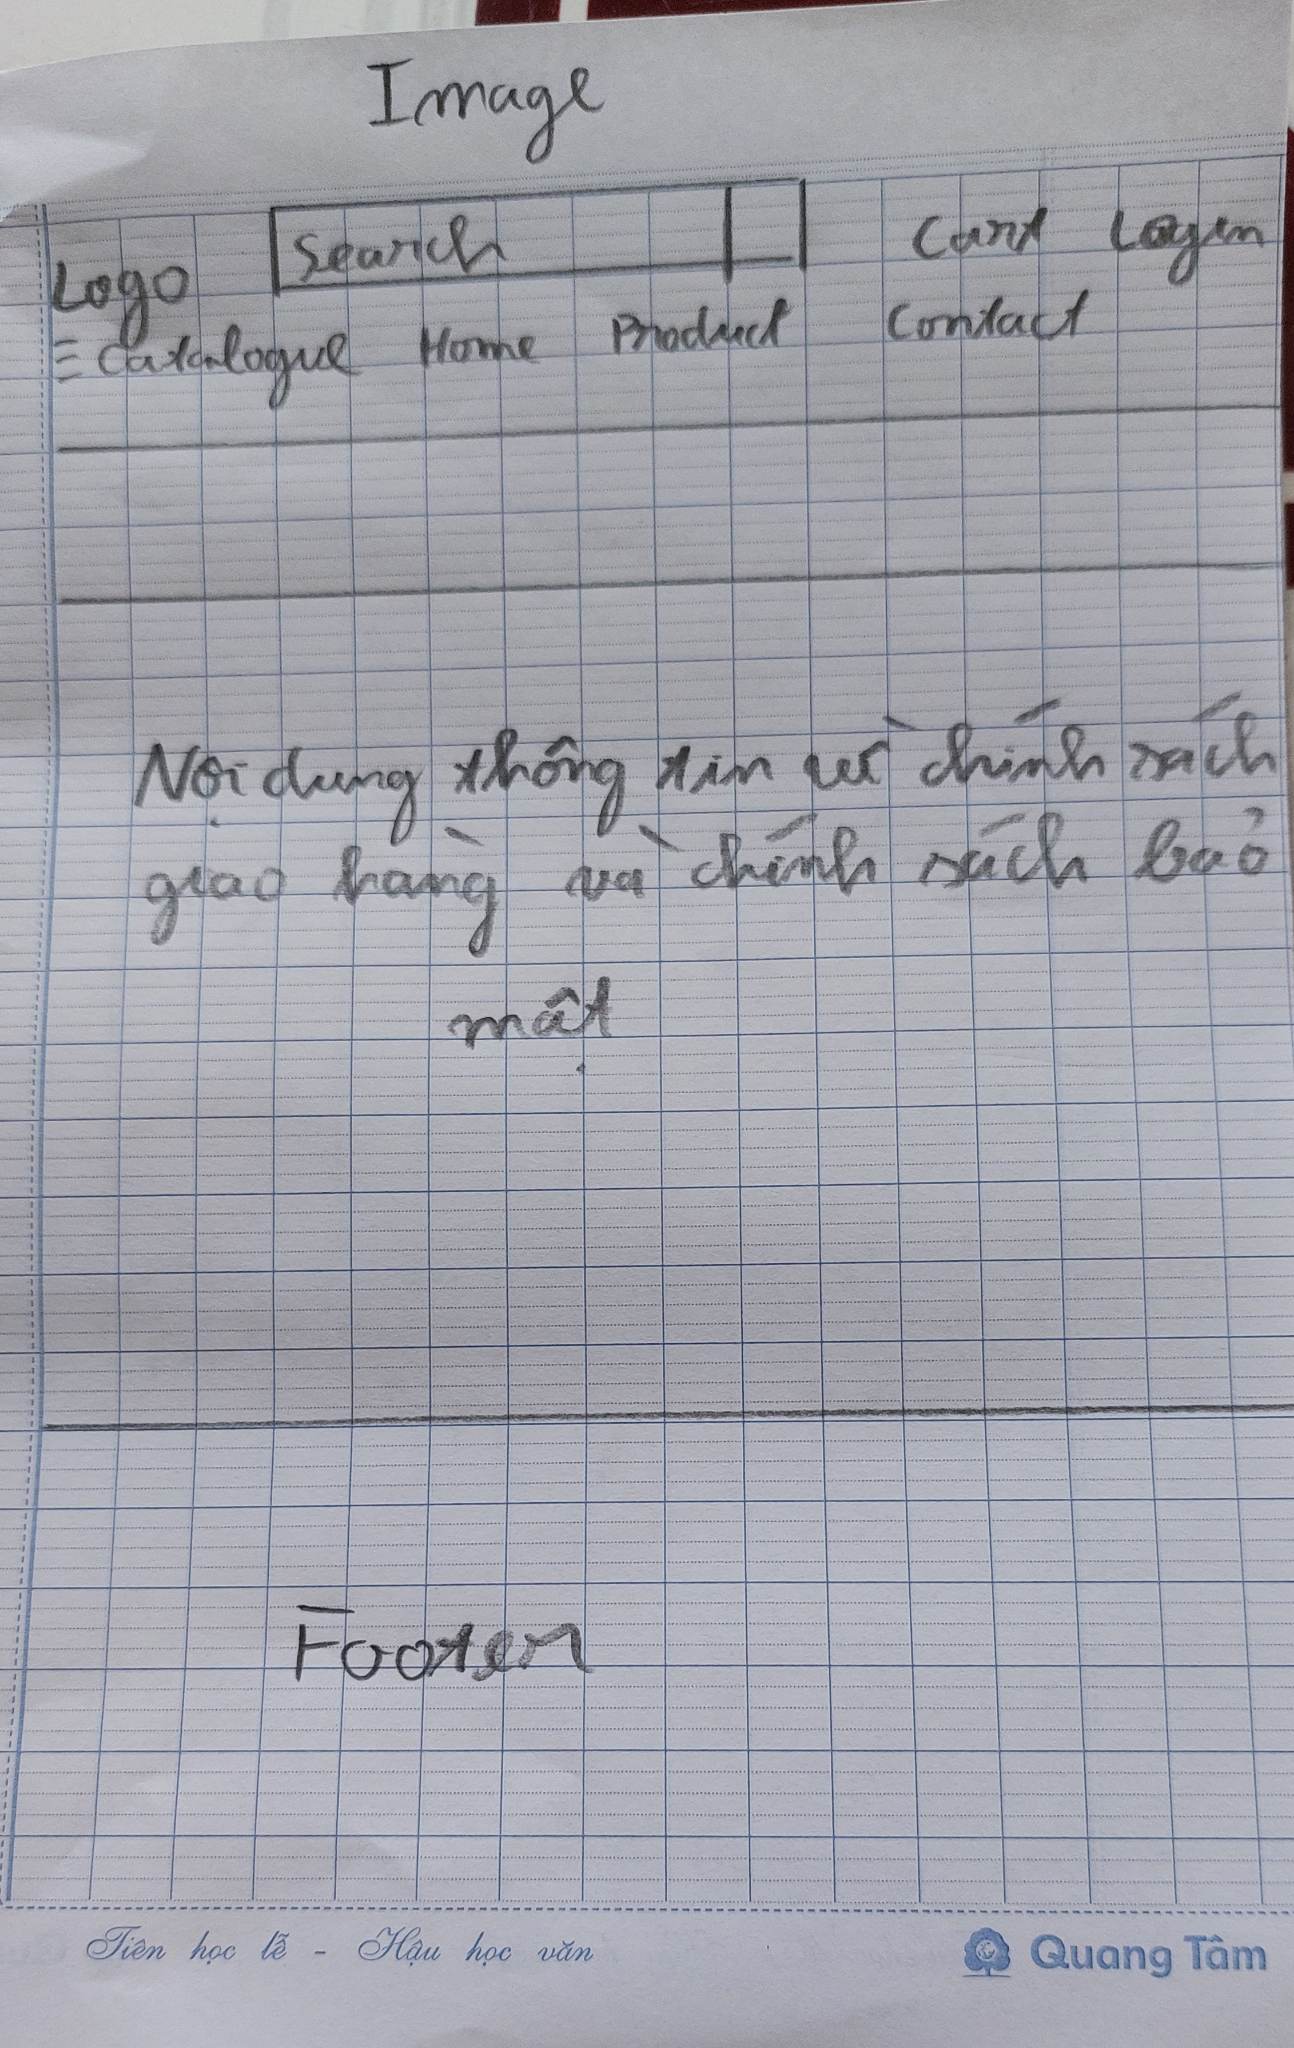 Image
Logo Search Cart Login
Catalogue Home Product Contact
Nội dung thông tin về chính sách
giao hàng và chính sách bảo
mật
Footer
Tiên học lễ - Hậu học văn Quang Tâm